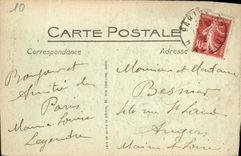 10
CARTE POSTALE
Correspondance
Adresse
Bonjour et
Amitiés de
Paris
Marie Louise
Legendre
Monsieur et Madame
Besnier
rue St Laud
Angers
Maine et Loire